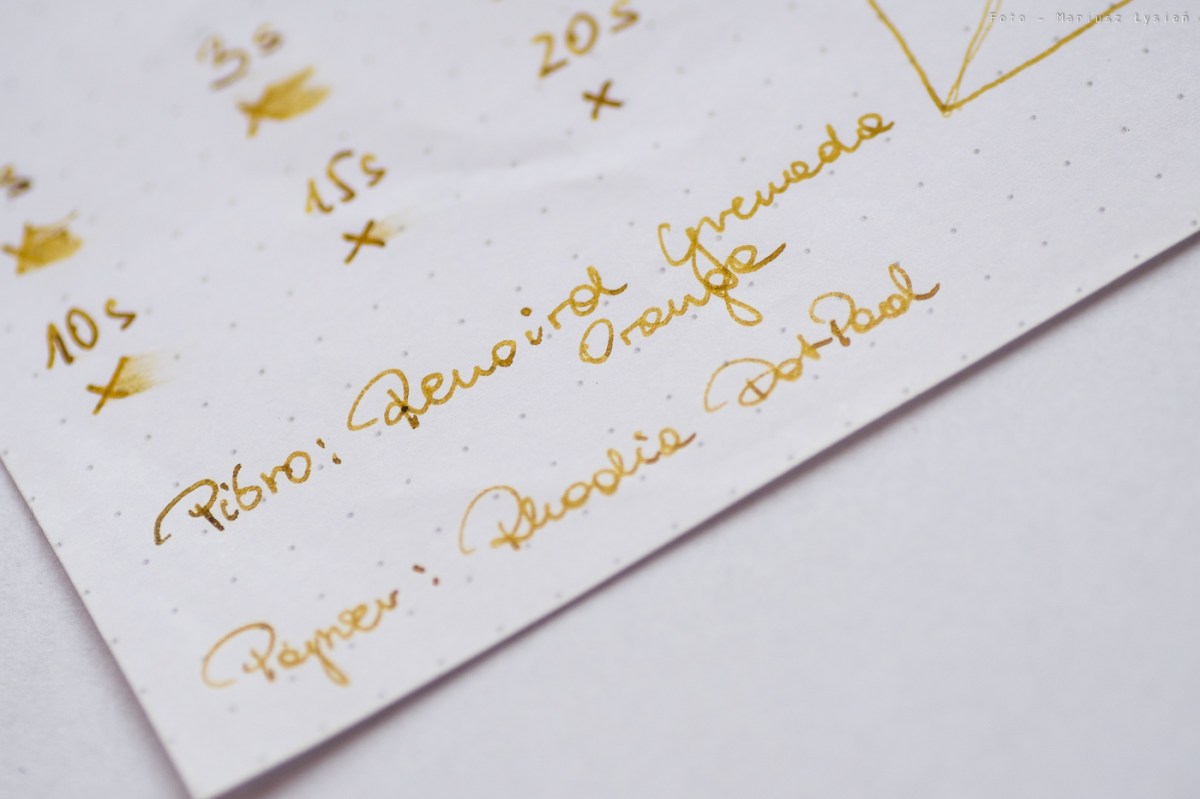 Foto - Mariusz Łysień
3s
20s
15s
s
10s
Pióro: Grenada
Orange
Papier: Rhodia Dot Pad